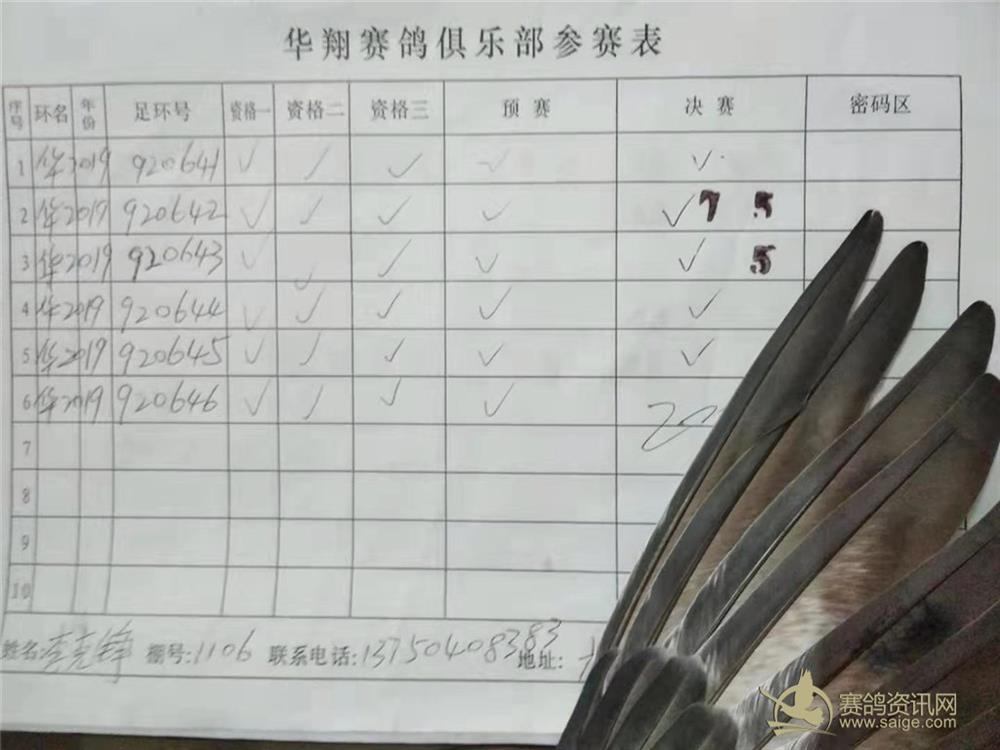 华翔赛鸽俱乐部参赛表
序号 环名 年份 足环号 资格一 资格二 资格三 预赛 决赛 密码区
1 华 2019 920641 ✓ ✓ ✓ ✓ ✓
2 华 2019 920642 ✓ ✓ ✓ ✓ ✓ 7 5
3 华 2019 920643 ✓ ✓ ✓ ✓ ✓ 5
4 华 2019 920644 ✓ ✓ ✓ ✓ ✓
5 华 2019 920645 ✓ ✓ ✓ ✓ ✓
6 华 2019 920646 ✓ ✓ ✓ ✓
7
8
9
10
姓名: 李克锋 棚号: 1106 联系电话: 13750408383 地址:
赛鸽资讯网
www.saige.com